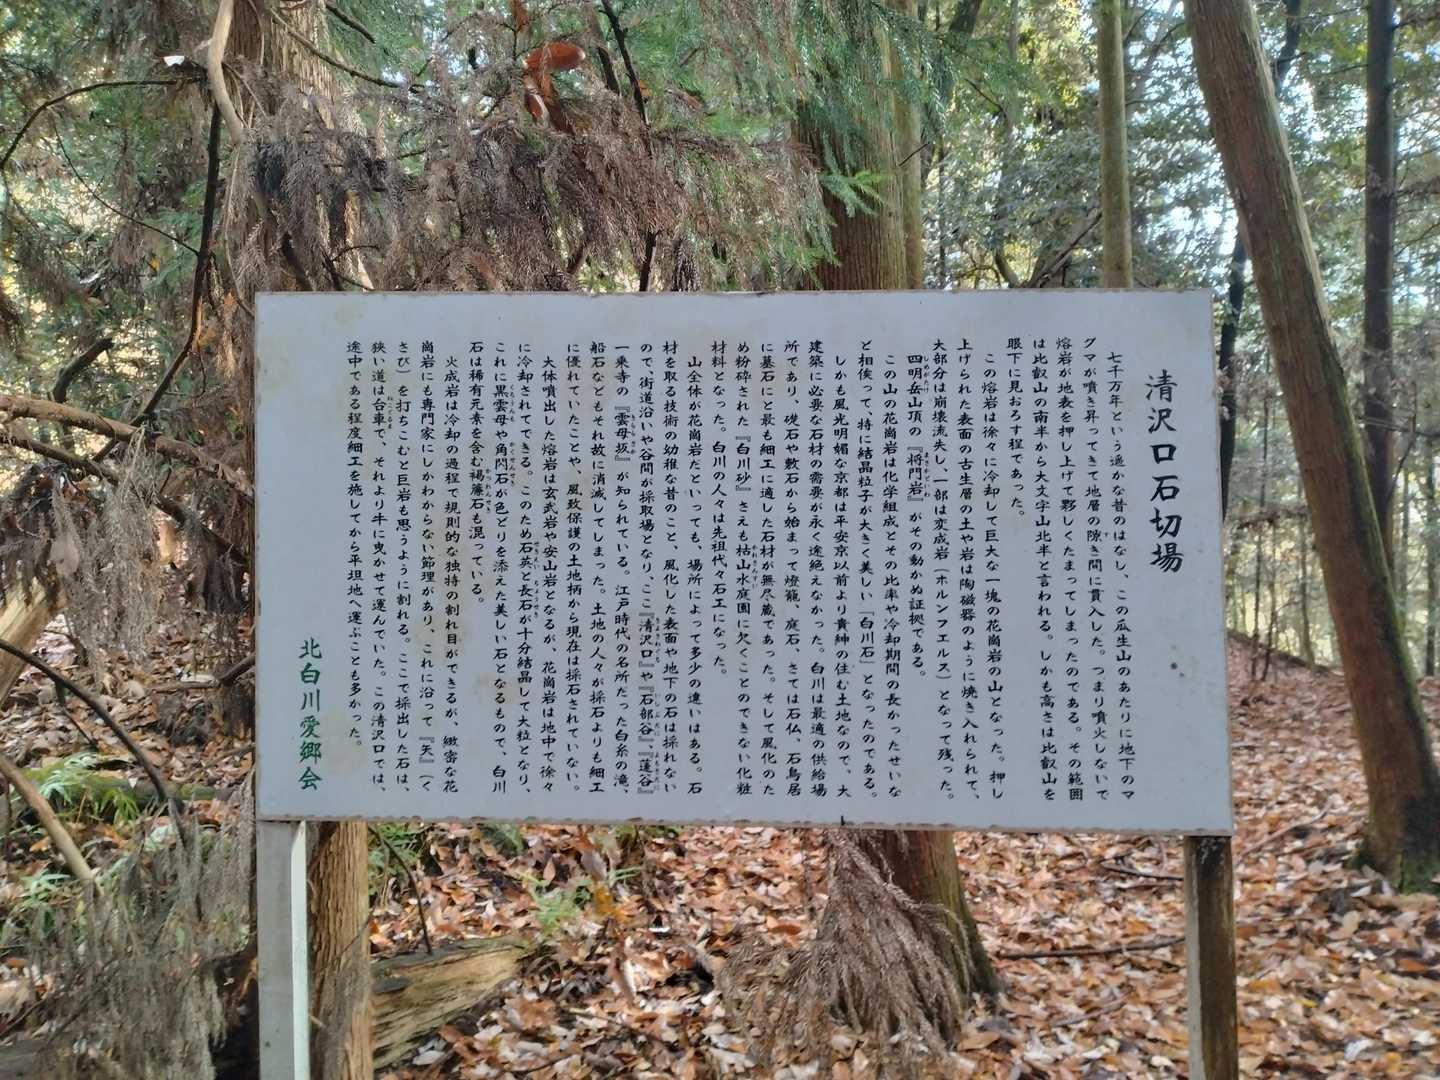 清沢口石切場
七千万年という遙かな昔のはなし、この瓜生山のあたりに地下のマ
グマが噴き昇ってきて地層の隙き間に貫入した。つまり噴火しないで
熔岩が地表を押し上げて夥しくたまってしまったのである。その範囲
は比叡山の南半から大文字山北半と言われる。しかも高さは比叡山を
眼下に見おろす程であった。
この熔岩は徐々に冷却して巨大な一塊の花崗岩の山となった。押し
上げられた表面の古生層の土や岩は陶磁器のように焼き入れられて、
大部分は崩壊流失し、一部は変成岩(ホルンフェルス)となって残った。
四明岳山頂の『将門岩』がその動かぬ証拠である。
この山の花崗岩は化学組成とその比率や冷却期間の長かったせいな
ど相俟って、特に結晶粒子が大きく美しい「白川石」となったのである。
しかも風光明媚な京都は平安京以前より貴紳の住む土地なので、大
建築に必要な石材の需要が永く途絶えなかった。白川は最適の供給場
所であり、礎石や敷石から始まって燈籠、庭石、さては石仏、石鳥居
に墓石にと最も細工に適した石材が無尽蔵であった。そして風化のた
め粉砕された『白川砂』さえも枯山水庭園に欠くことのできない化粧
材料となった。白川の人々は先祖代々石工になった。
山全体が花崗岩だといっても、場所によって多少の違いはある。石
材を取る技術の幼稚な昔のこと、風化した表面や地下の石は採れない
ので、街道沿いや谷間が採取場となり、ここ『清沢口』や『石部谷』、『蓬谷』
一乗寺の『雲母坂』が知られている。江戸時代の名所だった白糸の滝、
船石などもそれ故に消滅してしまった。土地の人々が採石よりも細工
に優れていたことや、風致保護の土地柄から現在は採石されていない。
大体噴出した熔岩は玄武岩や安山岩となるが、花崗岩は地中で徐々
に冷却されてできる。このため石英と長石が十分結晶して大粒となり、
これに黒雲母や角閃石が色どりを添えた美しい石となるもので、白川
石は稀有元素を含む褐簾石も混っている。
火成岩は冷却の過程で規則的な独特の割れ目ができるが、緻密な花
崗岩にも専門家にしかわからない節理があり、これに沿って『矢』(く
さび)を打ちこむと巨岩も思うように割れる。ここで採出した石は、
狭い道は台車で、それより牛に曳かせて運んでいた。この清沢口では、
途中である程度細工を施してから平坦地へ運ぶことも多かった。
北白川愛郷会